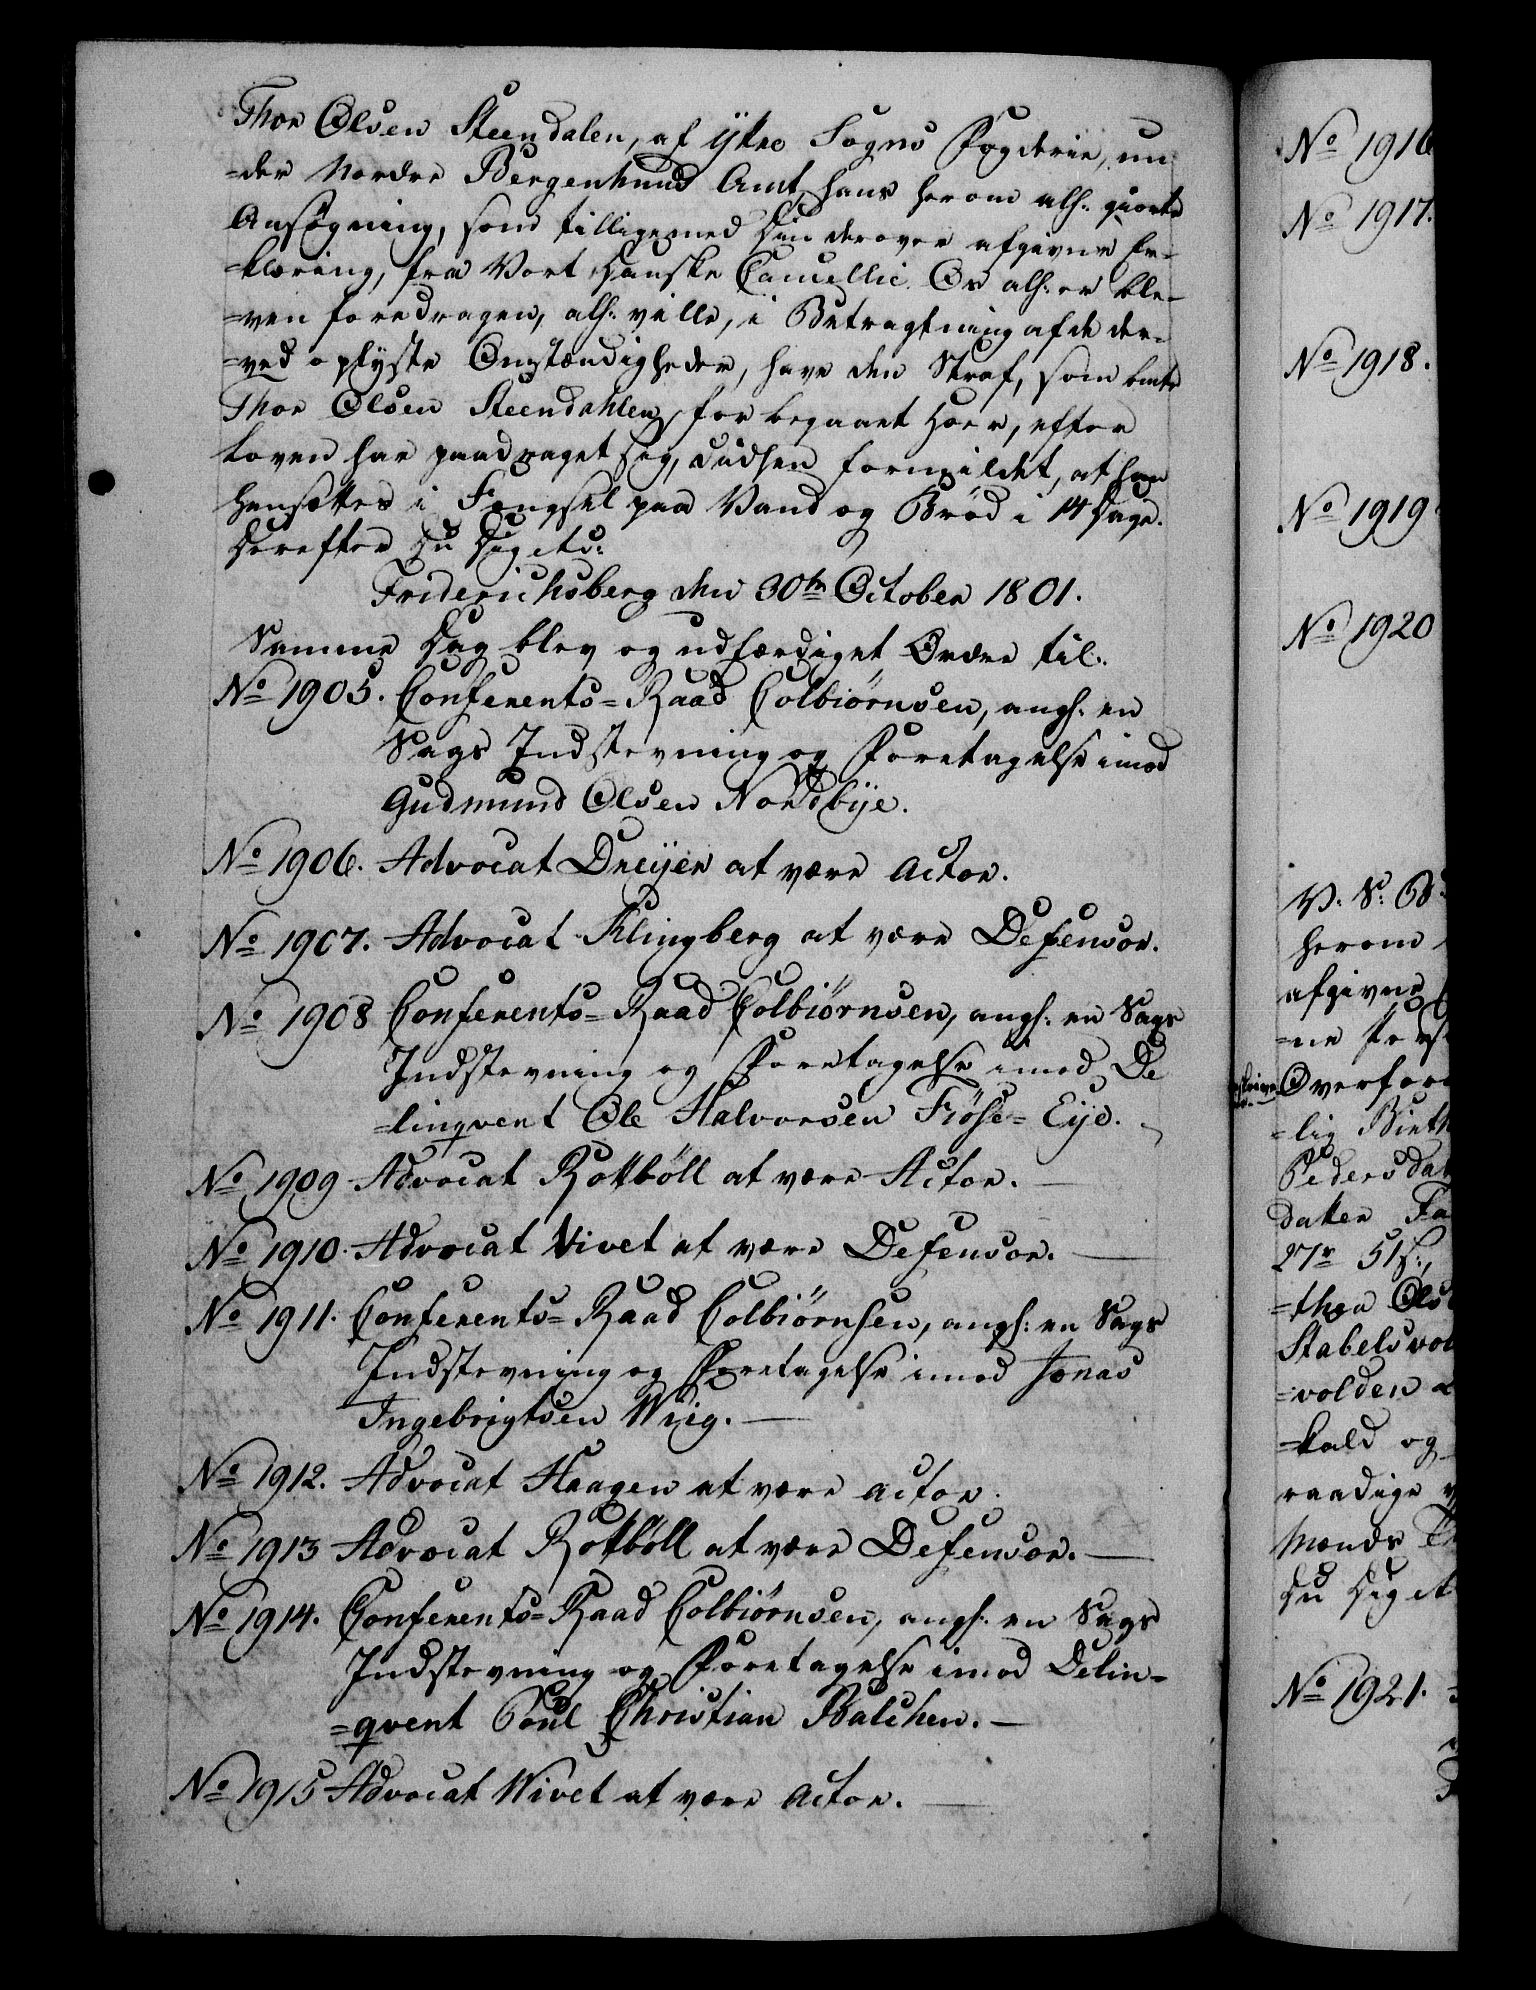 Thor Olsen Steendalen, af ÿttre Sogns Fogderie, un
=der Nordre Bergenhuus Amt, hans herom allh: giorte
Ansøgning, som tilligemed Din derover afgivne Er-
=klæring, fra Vort Danske Cancellie Os allh: er ble-
=ven foredragen, allh: ville, i Betragtning af de der-
=ved oplyste Omstændigheder, have den Straf, som bemte
Thor Olsen Steendahlen, for begaaet Hoer, efter
Loven har paadraget sig, saaledes formildet, at han
hensættes i Fængsel paa Vand og Brød i 14 Dage.
Derefter Du Dig etc:
Friderichsberg den 30te October 1801.
Samme Dag blev og udfærdiget Ordre til:
No 1905. Conferents=Raad Colbiørnsen, angh: en
Sags Indstevning og Foretagelse imod
Gudmund Olsen Nordbÿe.
No 1906. Advocat Dreÿer at være Actor.
No 1907. Advocat Klingberg at være Defensor.
No 1908 Conferents=Raad Colbiørnsen, angh: en Sags
Indstevning og Foretagelse imod De
=linqvent Ole Halvorsen Frøse=Eÿe.
No 1909 Advocat Rottbøll at være Actor.
No 1910. Advocat Vivet at være Defensor.
No 1911. Conferents=Raad Colbiørnsen, angh: en Sags
Indstevning og Foretagelse imod Jonas
Ingebrigtsen Wiig.
No 1912. Advocat Haagen at være Actor.
No 1913 Advocat Rottbøll at være Defensor.
No 1914. Conferents=Raad Colbiørnsen, angh: en Sags
Indstevning og Foretagelse imod Delin=
=qvent Poul Christian Balchen.
No 1915 Advocat Wivet at være Actor.
No 1916
No 1917.
No 1918.
No 1919
No 1920
V: S: G
herom
afgivne
=ne
Overfor
=lig
Peders
datter
27r 51f:,
=thea Ols
Stabelsvol
=volden
=kald og
raadige
Mænds
Du Dig et
No 1921.